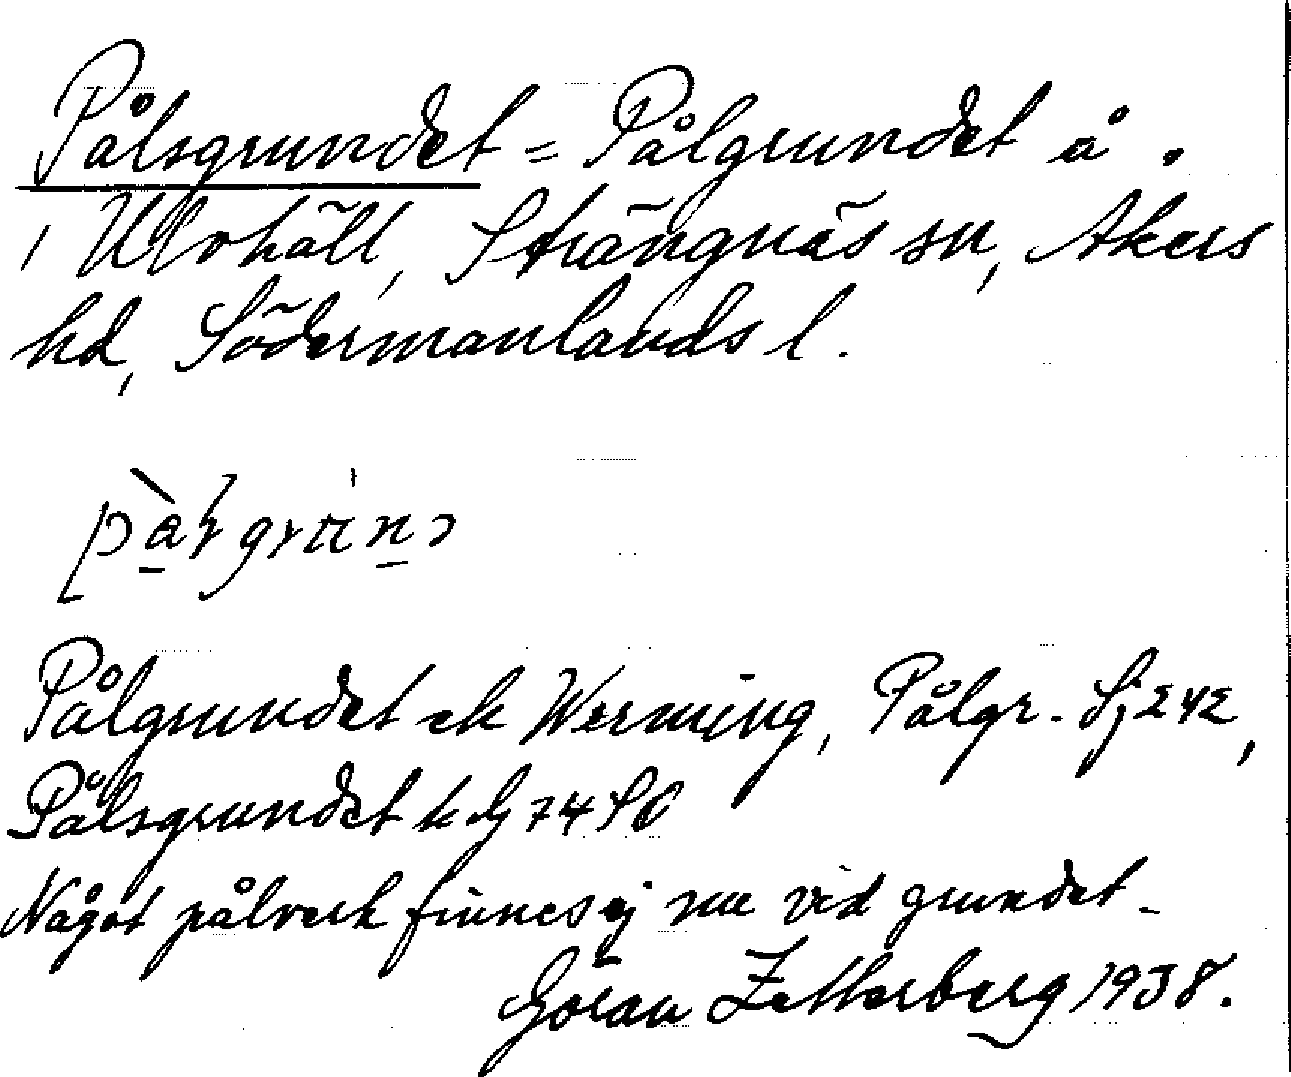 Pålsgrundet = Pålgrundet å .
i Ulvhäll, Strängnäs sn, Åkers
hd, Södermanlands l.
Pålgrundet ek Werming, Pålgr. Sj 242,
Pålsgrundet
Något pålverk finnes ej nu vid grundet.
Göran Zetterberg 1938.